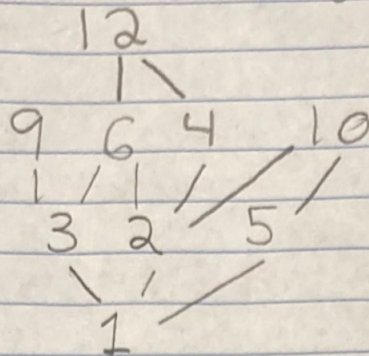 12
9 6 4 10
3 2 5
1